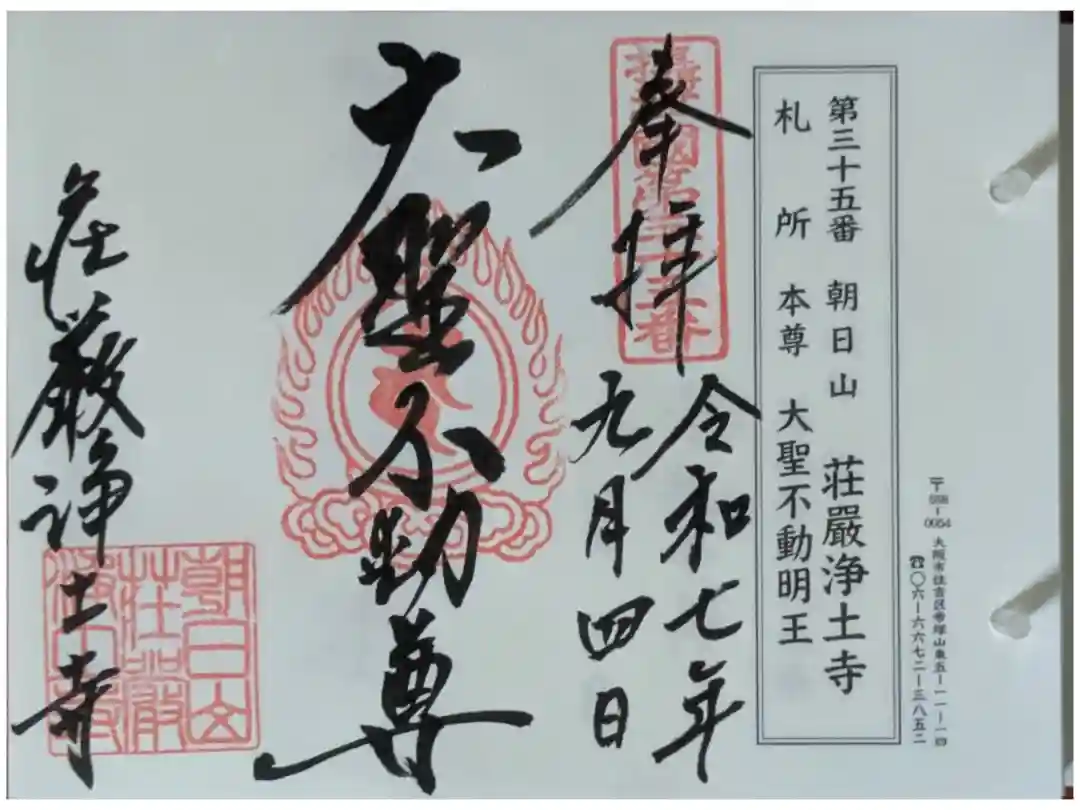 〒558-0054 大阪市住吉区帝塚山東五-一一-一四
☎〇六-六六七二-三八五二
第三十五番 朝日山 荘厳浄土寺
札所 本尊 大聖不動明王
奉拝
摂津國第三十五番
令和七年
九月四日
大聖不動尊
荘厳浄土寺
朝日山荘嚴浄土寺